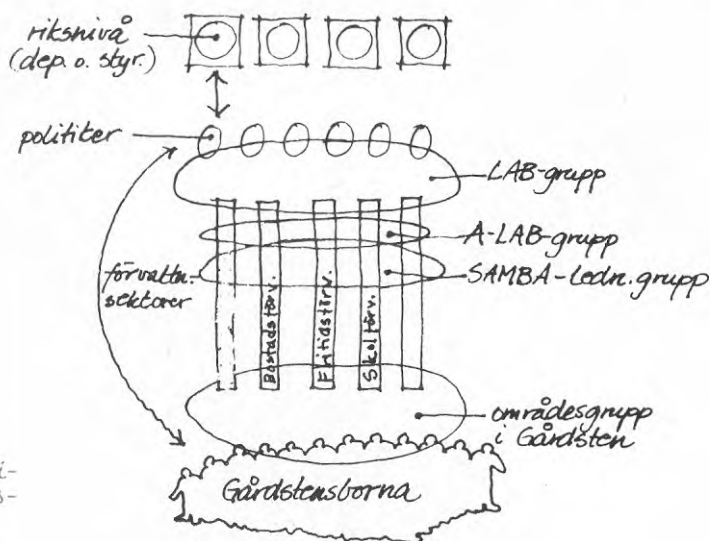 riksnivå
(dep. o. styr.)
politiker
LAB-grupp
A-LAB-grupp
SAMBA-ledn.grupp
förvaltn.-
sektorer
Bostadsförv.
Fritidsförv.
Skolförv.
områdesgrupp
i Gårdsten
Gårdstensborna
i-
s-